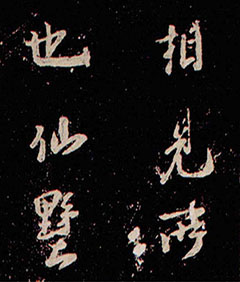 相見
也仙墅